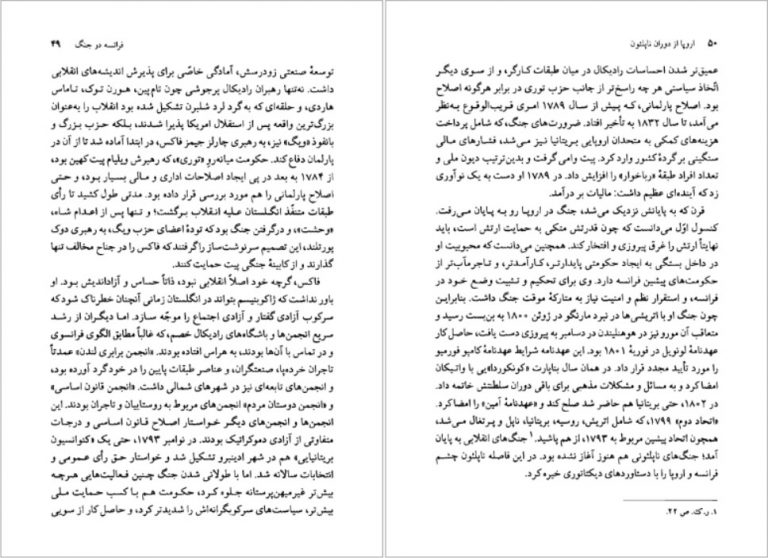 فرانسه در جنگ ۴۹
توسعهٔ صنعتی زودرسش، آمادگی خاصّی برای پذیرش اندیشه‌های انقلابی
داشت. نه‌تنها رهبران رادیکال پرجوشی چون تام‌پین، هورن توک، تاماس
هاردی، و حلقه‌ای که به گرد لرد شلبرن تشکیل شده بود انقلاب را به‌عنوان
بزرگ‌ترین واقعه پس از استقلال امریکا پذیرا شدند، بلکه حزب بزرگ و
بانفوذ «ویگ» نیز، به رهبری چارلز جیمز فاکس، در ابتدا آماده شد تا از آن در
پارلمان دفاع کند. حکومت میانه‌روِ «توری»، که رهبرش ویلیام پیت کهین بود،
از ۱۷۸۴ به بعد در پی ایجاد اصلاحات اداری و مالی بسیار بود، و حتی
اصلاح پارلمانی را هم مورد بررسی قرار داده بود. مدتی طول کشید تا رأی
طبقات متنفّذ انگلستان علیه انقلاب برگشت؛ و تنها پس از اعدام شاه،
«وحشت»، و درگرفتن جنگ بود که تودهٔ اعضای حزب ویگ، به رهبری دوک
پورتلند، این تصمیم سرنوشت‌ساز را گرفتند که فاکس را در جناح مخالف تنها
گذارند و از کابینهٔ جنگی پیت حمایت کنند.
فاکس، گرچه خود اصلاً انقلابی نبود، ذاتاً حساس و آزاداندیش بود. او
باور نداشت که ژاکوبنیسم بتواند در انگلستان زمانی آنچنان خطرناک شود که
سرکوب آزادی گفتار و آزادی اجتماع را موجّه سازد. اما دیگران از رشد
سریع انجمن‌ها و باشگاه‌های رادیکال خصم، که غالباً مطابق الگوی فرانسوی
و در تماس با آن‌ها بودند، به هراس افتاده بودند. «انجمن برابری لندن» عمدتاً
تاجران خرده‌پا، صنعتگران، و عناصر طبقات پایین را در خودگرد آورده بود،
و انجمن‌های تابعه‌ای نیز در شهرهای شمالی داشت. «انجمن قانون اساسی»
و «انجمن دوستان مردم» انجمن‌های مربوط به روستاییان و تاجران بودند. این
انجمن‌ها و انجمن‌های دیگر خواستار اصلاح قانون اساسی و درجات
متفاوتی از آزادی دموکراتیک بودند. در نوامبر ۱۷۹۳، حتی یک «کنوانسیون
بریتانیایی» هم در شهر ادینبرو تشکیل شد و خواستار حق رأی عمومی و
انتخابات سالانه شد. اما با طولانی شدن جنگ چنین فعالیت‌هایی هرچه
بیش‌تر غیرمیهن‌پرستانه جلوه کرد، حکومت هم با کسب حمایت ملی
بیش‌تر، سیاست‌های سرکوبگرانه‌اش را شدیدتر کرد، و حاصل کار از سویی
۵۰ اروپا از دوران ناپلئون
عمیق‌تر شدن احساسات رادیکال در میان طبقات کارگر، و از سوی دیگر
اتّخاذ سیاستی هر چه راسخ‌تر از جانب حزب توری در برابر هرگونه اصلاح
بود. اصلاح پارلمانی، که پیش از سال ۱۷۸۹ امری قریب‌الوقوع به‌نظر
می‌آمد، تا سال ۱۸۳۲ به تأخیر افتاد. ضرورت‌های جنگ، که شامل پرداخت
هزینه‌های کمکی به متحدان اروپایی بریتانیا نیز می‌شد، فشارهای مالی
سنگینی بر گردهٔ کشور وارد کرد. پیت وامی گرفت و بدین‌ترتیب دیون ملی و
تعداد افراد طبقهٔ «رباخوار» را افزایش داد. در ۱۷۸۹ او دست به یک نوآوری
زد که آینده‌ای عظیم داشت: مالیات بر درآمد.
قرن که به پایانش نزدیک می‌شد، جنگ در اروپا رو به پایان می‌رفت.
کنسول اوّل می‌دانست که چون قدرتش متکی به حمایت ارتش است، باید
نهایتاً ارتش را غرق پیروزی و افتخار کند. همچنین می‌دانست که محبوبیت او
در داخل بستگی به ایجاد حکومتی پایدارتر، کارآمدتر، و تاجرمآب‌تر از
حکومت‌های پیشین فرانسه دارد. وی برای تحکیم و تثبیت وضع خود در
فرانسه، و استقرار نظم و امنیت نیاز به متارکهٔ موقت جنگ داشت. بنابراین
چون جنگ او با اتریشی‌ها در نبرد مارنگو در ژوئن ۱۸۰۰ به بن‌بست رسید و
متعاقب آن مورو نیز در هوهنلیندن در دسامبر به پیروزی دست یافت، حاصل کار
عهدنامهٔ لونویل در فوریهٔ ۱۸۰۱ بود. این عهدنامه شرایط عهدنامهٔ کامپو فورمیو
را مورد تأیید مجدد قرار داد. در همان سال بناپارت «کونکورده»ای با واتیکان
امضا کرد و به مسائل و مشکلات مذهبی برای باقی دوران سلطنتش خاتمه داد.
در ۱۸۰۲، حتی بریتانیا هم حاضر شد صلح کند و «عهدنامهٔ آمین» را امضا کرد.
«اتحاد دوم» ۱۷۹۹، که شامل اتریش، روسیه، بریتانیا، ناپل و پرتغال می‌شد،
همچون اتحاد پیشین مربوط به ۱۷۹۳، از هم پاشید.۱ جنگ‌های انقلابی به پایان
آمد؛ جنگ‌های ناپلئونی هم هنوز آغاز نشده بود. در این فاصله ناپلئون چشم
فرانسه و اروپا را با دستاوردهای دیکتاتوری خیره کرد.
۱. ر.ک. ص ۲۲.